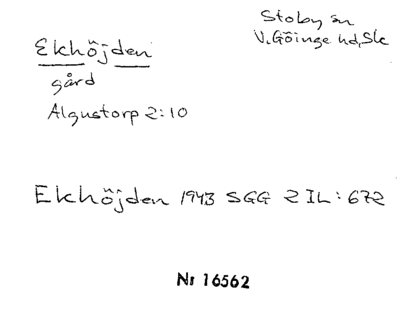 Ekhöjden
gård
Algustorp 2:10
Stoby sn
V. Göinge hd, Sk
Ekhöjden 1943 SGG 2 IL: 672
Nr 16562